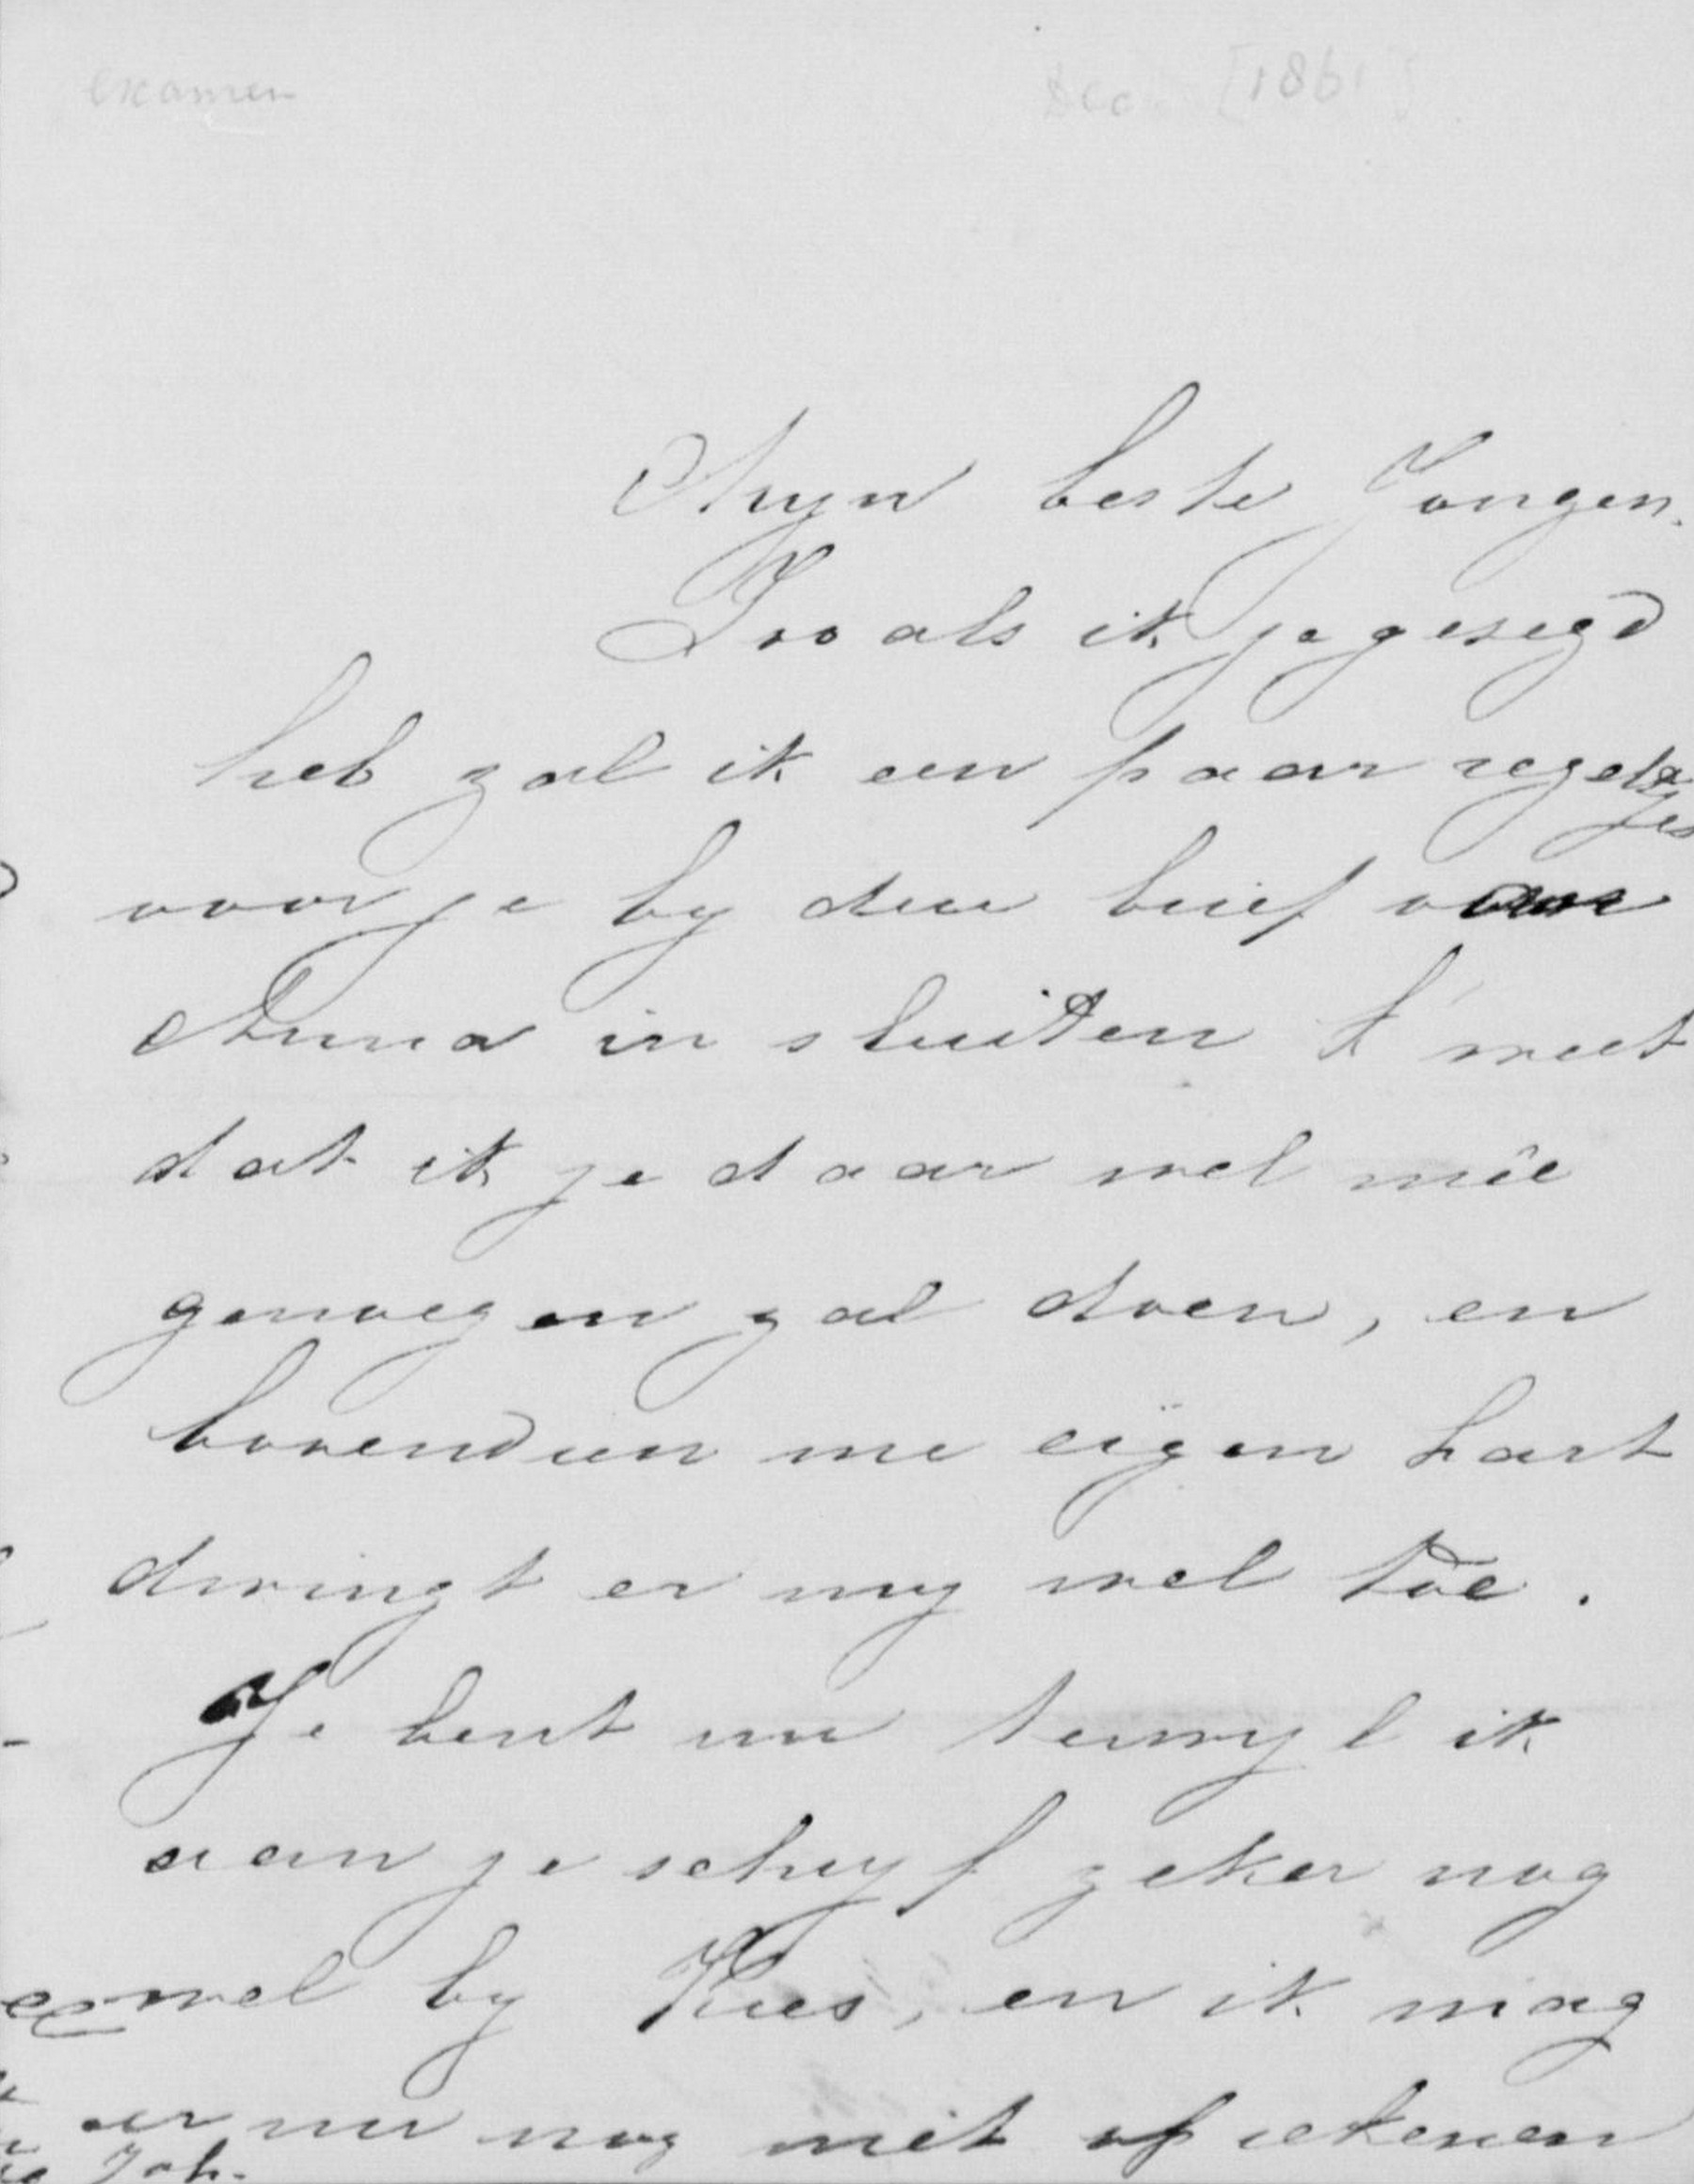 examen
Dec [1861]
Myn beste Jongen.
Zoo als ik je gezegd
heb zal ik een paar regeltjes
voor je by den brief van
Anna in sluiten k' weet
dat ik je daar wel mêe
genoegen zal doen, en
bovendien me eigen hart
dwingt er my wel toe.
Je bent nu terwyl ik
aan je schryf zeker nog
wel by Kees, en ik mag
er nu nog niet op rekenen
Joh.